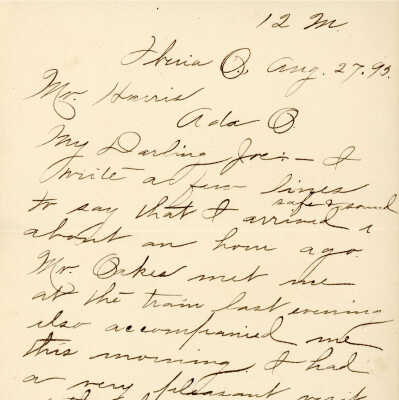 12 M.
Iberia O. Aug. 27. 95.
Mr. Harris
Ada O.
My Darling Joe:— I
write a few lines
safe & sound
to say that I arrived
about an hour ago.
Mr. Oakes met me
at the train last evening
also accompanied me
this morning. I had
a very pleasant visit